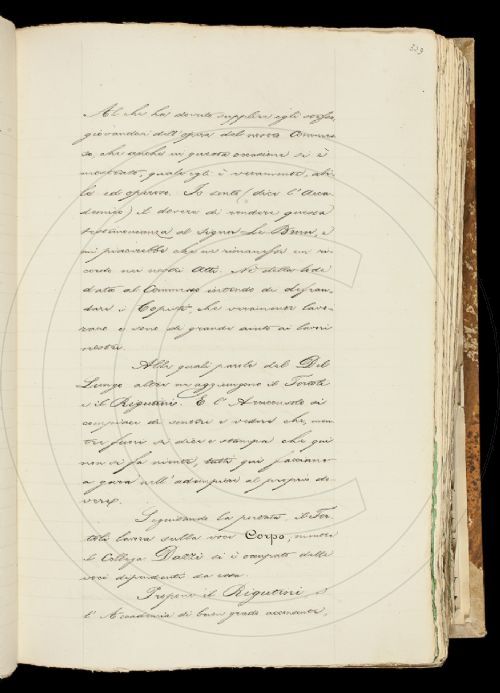 339
Al che ha dovuto supplire egli stesso,
giovandosi dell'opera del nostro Commes-
so, che anche in questa occasione si è
mostrato, quale egli è veramente, abi-
le ed operoso. Io sento (dice l'Acca-
demico) il dovere di rendere questa
testimonianza al Signor Le Brun, e
mi piacerebbe che ne rimanesse un ri-
cordo nei nostri Atti. Nè della lode
data al Commesso intendo di defrau-
dare i Copisti, che veramente lavo-
rano e sono di grande aiuto ai lavori
nostri.
Alle quali parole del Del
Lungo altre ne aggiungono il Tortoli
e il Rigutini. E l'Arciconsolo si
compiace di sentire e vedere che, men-
tre fuori si dice e stampa che qui
non si fa niente, tutti qui facciano
a gara nell'adempiere al proprio do-
vere.
Seguitando la portata, il Tor-
toli lavora sulla voce Corpo, mentre
il Collega Dazzi si è occupato delle
voci dipendenti da essa.
Propone il Rigutini e
l'Accademia di buon grado acconsente,